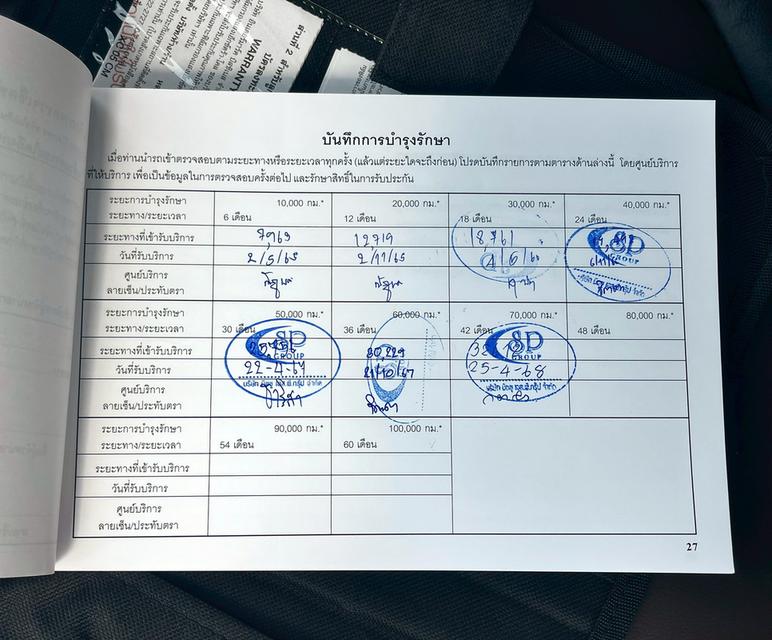 ส่วนที่ 2 สำหรับ
WARRANT
บันทึกการบำรุงรักษา
เมื่อท่านนำรถเข้าตรวจสอบตามระยะทางหรือระยะเวลาทุกครั้ง (แล้วแต่ระยะใดจะถึงก่อน) โปรดบันทึกรายการตามตารางด้านล่างนี้ โดยศูนย์บริการ
ที่ให้บริการ เพื่อเป็นข้อมูลในการตรวจสอบครั้งต่อไป และรักษาสิทธิ์ในการรับประกัน
ระยะการบำรุงรักษา 10,000 กม.* 20,000 กม.* 30,000 กม.* 40,000 กม.*
ระยะทาง/ระยะเวลา 6 เดือน 12 เดือน 18 เดือน 24 เดือน
ระยะทางที่เข้ารับบริการ 7,963 12,719 18,761
วันที่รับบริการ 2/5/65 2/11/65
ศูนย์บริการ
ลายเซ็น/ประทับตรา
SP
GROUP
ระยะการบำรุงรักษา 50,000 กม.* 60,000 กม.* 70,000 กม.* 80,000 กม.*
ระยะทาง/ระยะเวลา 30 เดือน 36 เดือน 42 เดือน 48 เดือน
ระยะทางที่เข้ารับบริการ 30,229
วันที่รับบริการ 22-4-67 21/10/67 25-4-68
ศูนย์บริการ
ลายเซ็น/ประทับตรา
SP
GROUP
บริษัท มิตซู เอส.พี.กรุ๊ป จำกัด
SP
GROUP
บริษัท มิตซู เอส.พี.กรุ๊ป จำกัด
ระยะการบำรุงรักษา 90,000 กม.* 100,000 กม.*
ระยะทาง/ระยะเวลา 54 เดือน 60 เดือน
ระยะทางที่เข้ารับบริการ
วันที่รับบริการ
ศูนย์บริการ
ลายเซ็น/ประทับตรา
27